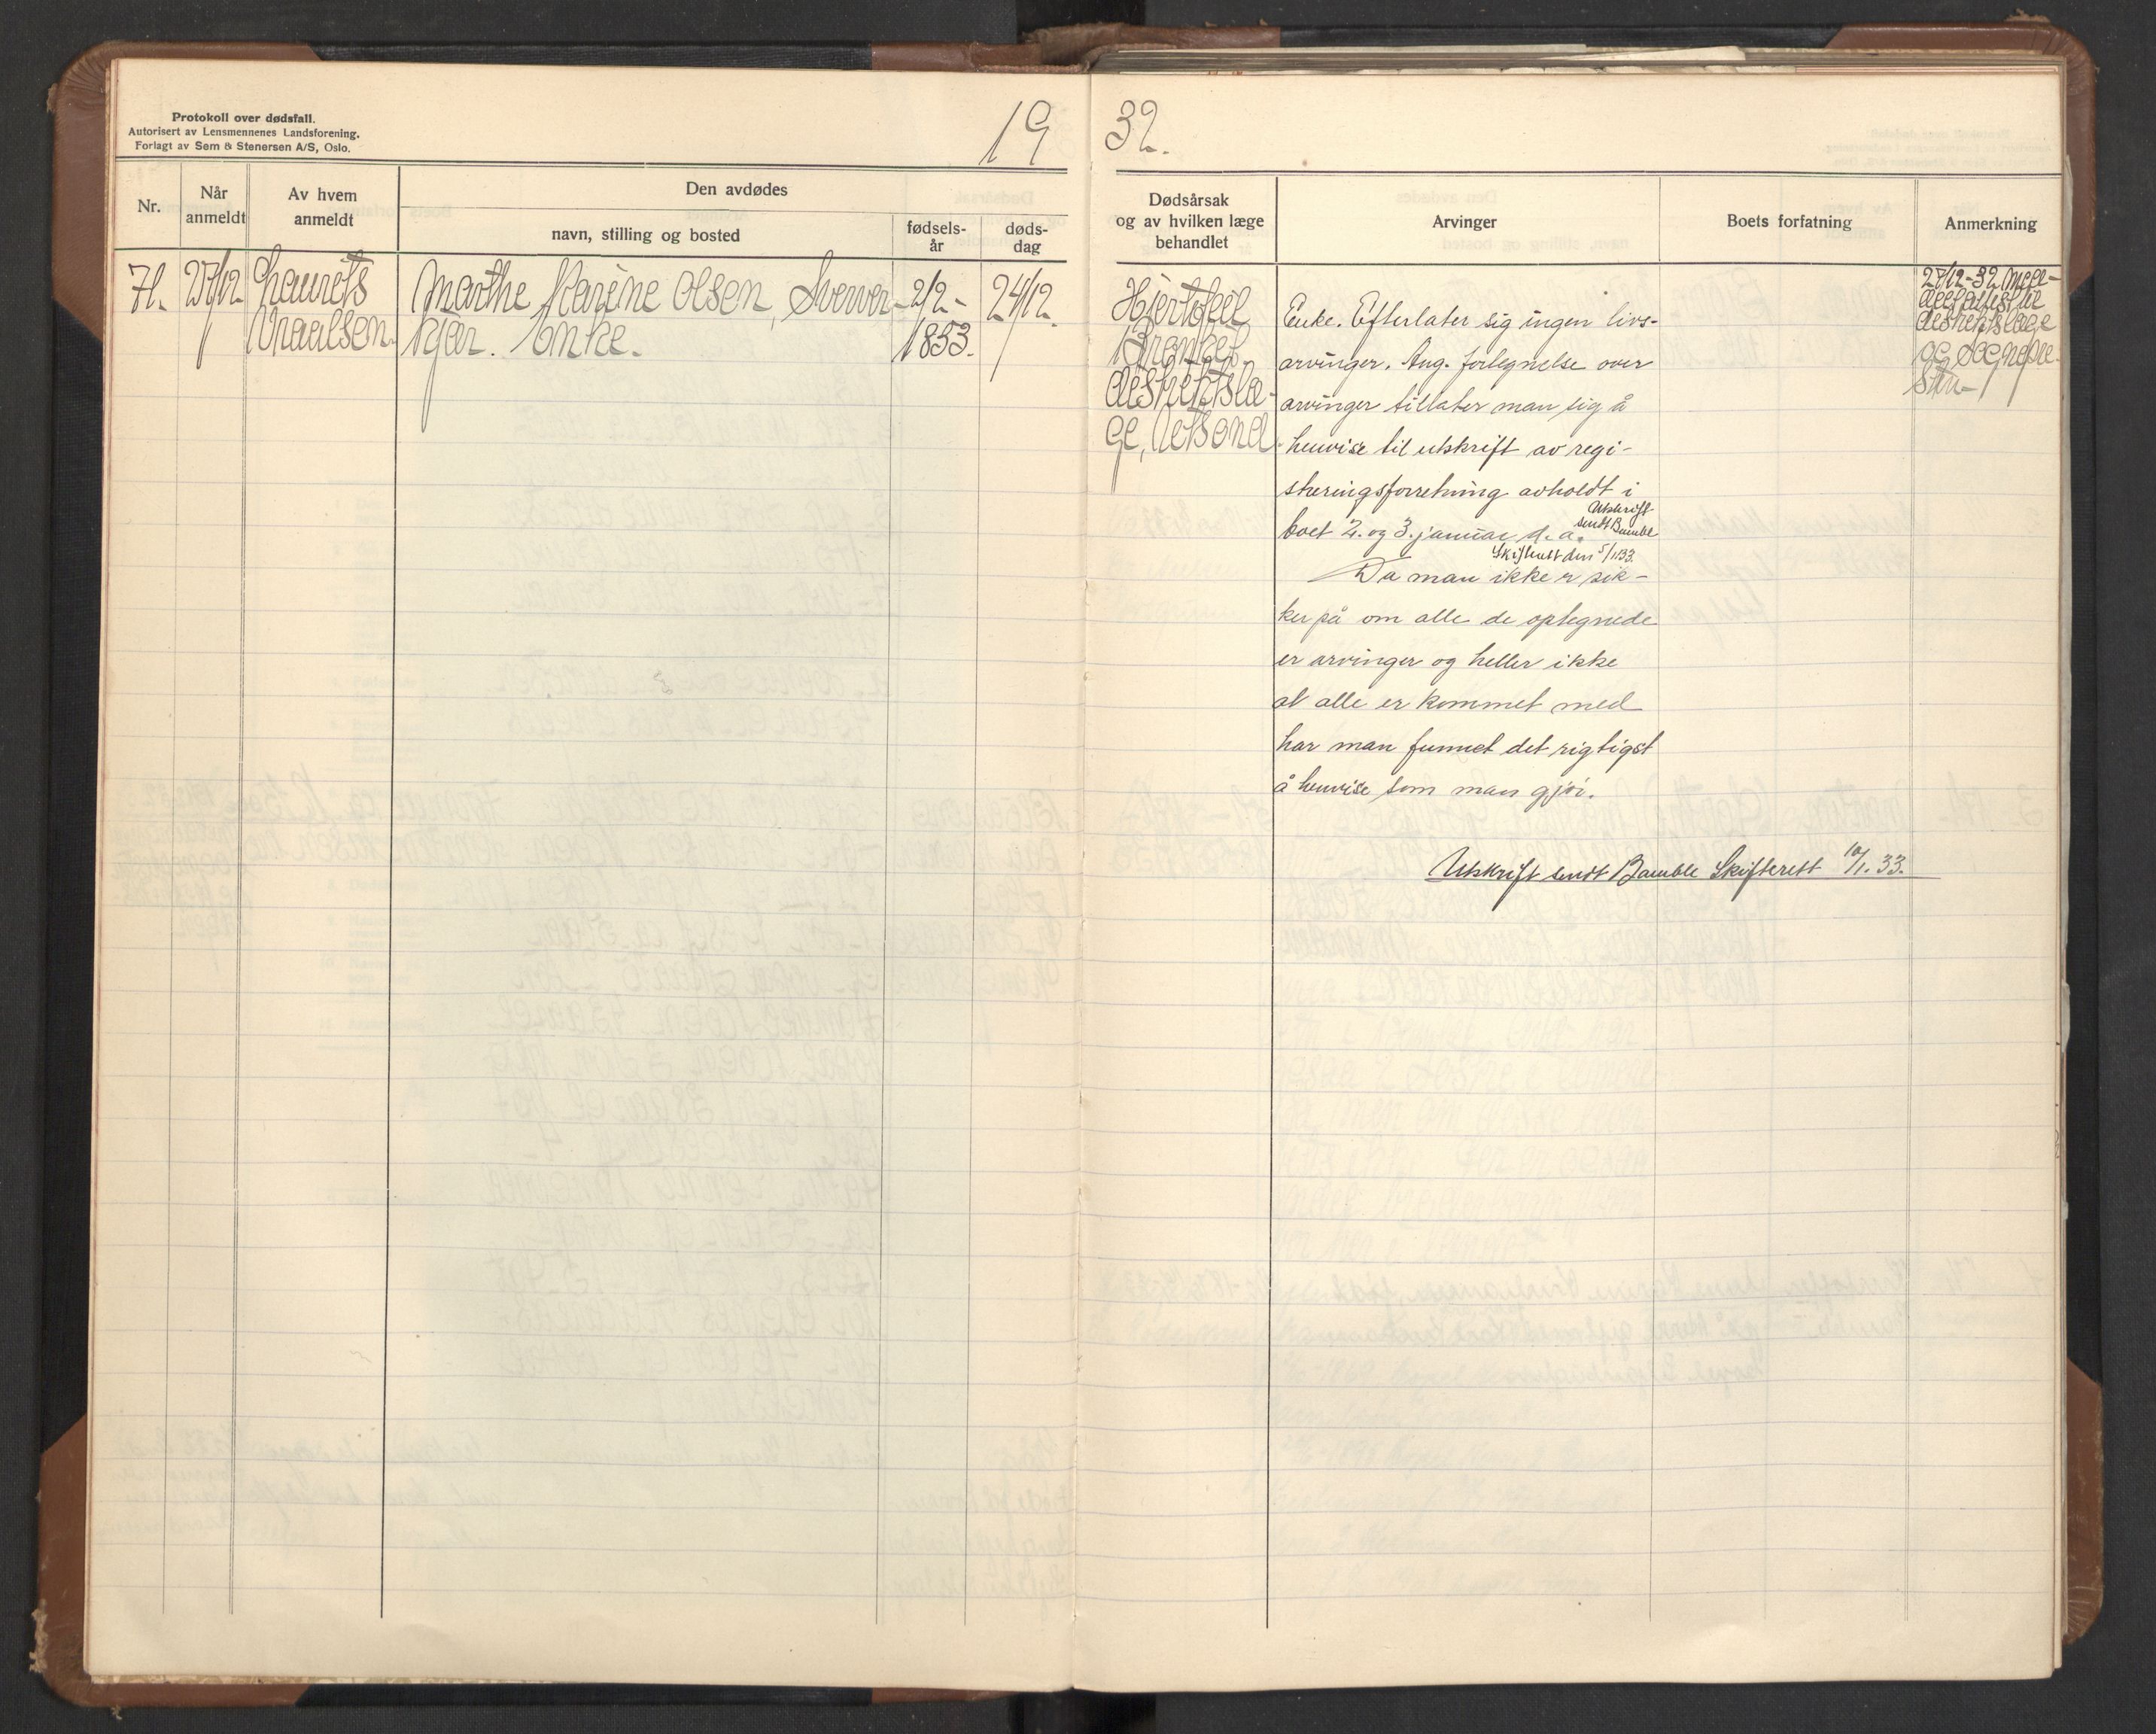 Protokoll over dødsfall.
Autorisert av Lensmennenes Landsforening.
Forlagt av Sem & Stenersen A/S, Oslo.
19
32.
Nr.
Når
anmeldt
Av hvem
anmeldt
Den avdødes
navn, stilling og bosted
fødsels-
år
døds-
dag
Dødsårsak
og av hvilken læge
behandlet
Arvinger
Boets forfatning
Anmerkning
71.
27/12
Laurits
Vraalsen.
Marthe Karine Olsen,
kjær. Enke.
2/2-
1853.
24/12
Hjertefeil
distriktslæ-
ge,
Enke. Efterlater sig ingen livs-
arvinger. Ang. fortegnelse over
arvinger tillater man sig å
henvise til utskrift av regi-
streringsforretning avholdt i
boet 2. og 3. januar d.a.
Utskrift
sendt Bamble
Skifterett den 5/1 33.
Da man ikke er sik-
ker på om alle de optegnede
er arvinger og heller ikke
at alle er kommet med
har man funnet det rigtigst
å henvise som man gjør.
Utskrift sendt Bamble Skifterett 10/1. 33.
27/12-32
distriktslæge
og sognepre-
sten